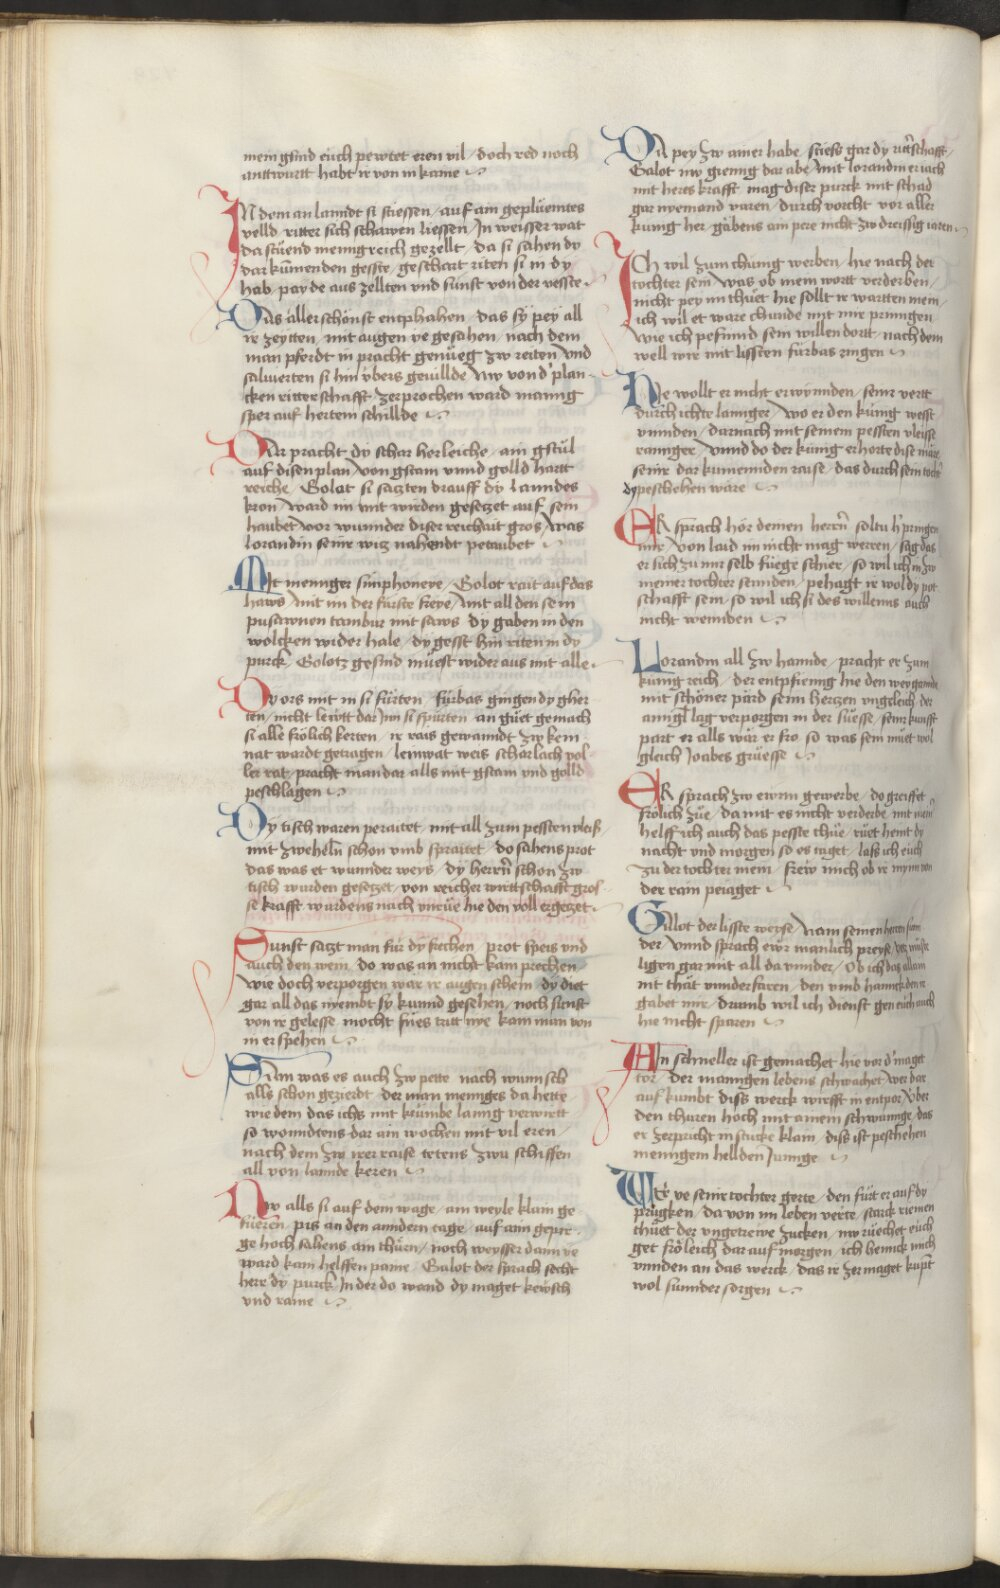 mein gsind euch pewtet eren vil / doch red noch
antwurtt habt ir von in kaine
IN dem an lanndt si stiessen / auf ain geplüemtes
velld / ritter sich schawen liessen / In weisser wat
da stüend menng reich gezellt / da si sahen dy
dar kumenden gesste / geschart riten si in dy
hab / payde aus zellten vnd sunst von der vesste
Das aller schönst entphahen / das sy pey all
ir zeytten / mit augen ye gesahen / nach dem
man pferdt in pracht genüeg zw reiten / Vnd
saluierten si hin vbers geuillde / Nw von d' plan
cken ritterschafft / zerprochen ward manig
sper auf hertem schillde
Dar pracht dy schar herleiche / ain gstül
auf disen plan / von gstain vnnd golld hartt
reiche / Golot si saczten drauff dy lanndes
kron / ward im mit wirden gesetzet auf sein
haubet / vor wunnder diser reichait gros / was
lorandin seinr wiz nahendt petaubet
Mit meniger simphoneye / Golot rait auf das
haws / mit im der fürste freye / mit all den sein
pusawnen tambur mit saws / dy gaben in den
wolcken wider hale / dy gesst hin riten in dy
purck / Golotz gesind müest wider aus mit alle
Dy ors mit in si fürten / fürbas gingen dy gher
ten / nicht lewtt dar Inn si spürten / an güet gemach
si alle frölich kerten / ir rais gewanndt zw kem
nat wardt getragen / leinwat weis scharlach vol
ler rat / pracht man dar alls mit gstain vnd golld
peschlagen
Dy tisch waren peraitet / mit all zum pessten vleis /
mit zwehelñ schon vmb spraitet / do sahens prot
das was et wunnder weys / dy herrñ schon zw
tisch wurden gesetzet / von reicher wirttschafft gros
se krafft / wardens nach vnrüe hie den voll ergetzet
Sunst satzt man für dy frechen / prot speis vnd
auch den wein / do was an nicht kain prechen
wie doch verporgen war ir augen schein / dy diet
gar all das nyembt sy kunnd gesehen / noch sunst
von ir gelesse / mocht fües tritt nye kain man von
in erspehen
Sünn was es auch zw pette / nach wunnsch
alls schon gezierdt / der man meniges da hette
wie dem das ichs mit kümbe lanng verwirtt
so wonndtens dar ain wochen mit vil eren /
nach dem zw irer raise tetens zwu schiffen
all von lannde keren
Nw alls si auf dem wage / ain weyle klain ge
fueren / pis an den anndern tage / auf ain gepir
ge hoch sahens ain thürn / noch weysser dann ye
ward kain helffen paine / Galot der sprach secht
here dy purck / In der do wand dy maget kewsch
vnd raine
Da pey zw ainer habe / stiess gar dy rittrschafft /
Galot nw gieng dar abe / mit lorandin er iach
mit heres krafft / mag diser purck mit schad
gar nyemand varen / durch vorcht vor aller
kunig her / gäbens ain pere nicht zw dreissig iaren
Ich wil zum chünig werben / hie nach der
tochter sein / was ob mein wortt verderben /
nicht pey im thüet hie sollt ir wartten mein /
ich wil et ware chunde mit mir prinngen
wie ich pefinnd sein willen dortt / nach dem
well wir mit lissten fürbas ringen
Nye wollt er nicht erwynnden / seinr vertt
durch ichte lannger / wo er den künig wesst
vinnden / darnach mit seinem pessten vleisse
rannger / Vnnd do der künig erhorte dise märe
seinr dar kumennden raise / das durch sein tocht'
dy peschehen wäre
ER sprach hör deinen herrñ / soltu h' pringen
mir / von laid im nicht mag werren / sag das
er sich zu mir selb füege schier / so wil ich in zw
meiner tochter sennden / pehagt ir wol dy pot
schafft sein / so wil ich si des willenns auch
nicht wennden
Lorandin all zw hannde / pracht er zum
künig reich / der entpfieng hie den weygannde
mit schöner pärd seim hertzen vngeleich / der
anngl lag verporgen in der süesse / seinr kunfft
part er alls wär er fro / so was sein müet wol
gleich Joabes grüesse
ER sprach zw ewrm gewerbe / do greiffet
frölich züe / da mit es nicht verderbe / mit mein
helff ich auch das pesste thüe / rüet heint dy
nacht vnd morgen so es taget / lass ich euch
zu der tochter mein / frew mich ob ir mynn von
der rain peiaget
Galot der lisste weyse / Nam seinen herren sunn
der / Vnnd sprach ewr manlich preyse /
ligen gar mit all da vnnder / Ob ich das allain
mit that vnnderfaren / den vmb hannck den ir
gabet mir / drumb wil ich dienst gen euch auch
hie nicht sparen
AIn schneller ist gemachet / hie vor d' maget
tor / der mannigen lebens schwachet / wer dar
auf kumbt / diss werck wirfft in entpor / Vber
den tharen hoch mit ainem schwunnge / das
er zerpricht in stücke klain / diss ist peschehen
mennigem hellden Junnge
Wer ye seinr tochter gerte / den füet er auf dy
prügken / da von im leben verte / starck riemen
thüet der vngetrewe zucken / nw rüechet euch
get frölich dar auf morgen / ich hennck mich
vnnden an das werck / das ir zer maget kupt
wol sunnder sorgen